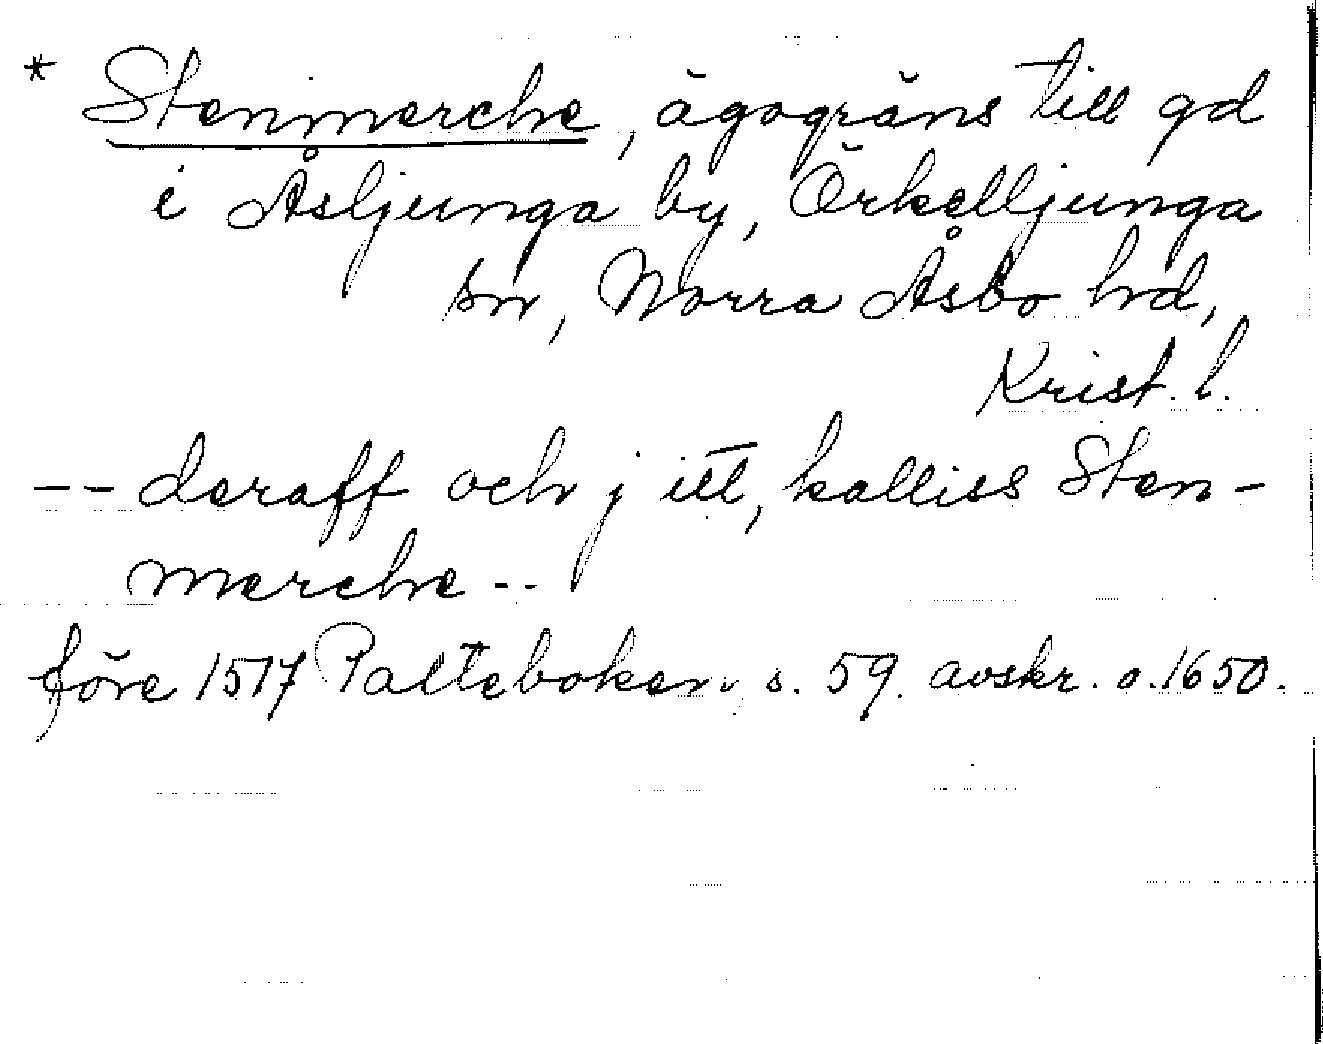 * Stenmerche, ägogräns till gd
i Åsljunga by, Örkelljunga
sn, Norra Åsbo hd,
Krist. l.
-- deraff och j itt, kalliss Sten-
merche --
före 1517 Palteboken s. 59. avskr. o. 1650.